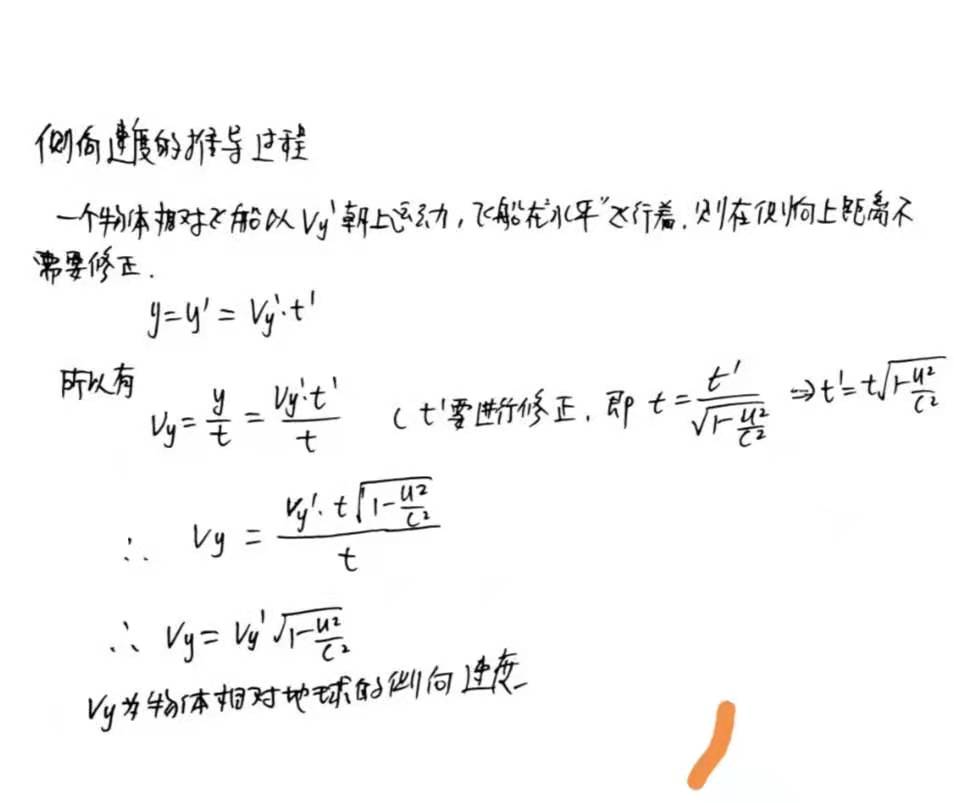 侧向速度的推导过程
一个物体相对飞船以 Vy' 朝上运动，飞船在"水平"飞行着，则在侧向上距离不
需要修正.
y=y' = Vy'·t'
所以有
Vy = y/t = Vy'·t'/t （t'要进行修正，即 t = t'/√(1-u²/c²) ⇒ t' = t√(1-u²/c²)
∴ Vy = Vy'·t√(1-u²/c²)/t
∴ Vy = Vy'√(1-u²/c²)
Vy为物体相对地球的侧向速度